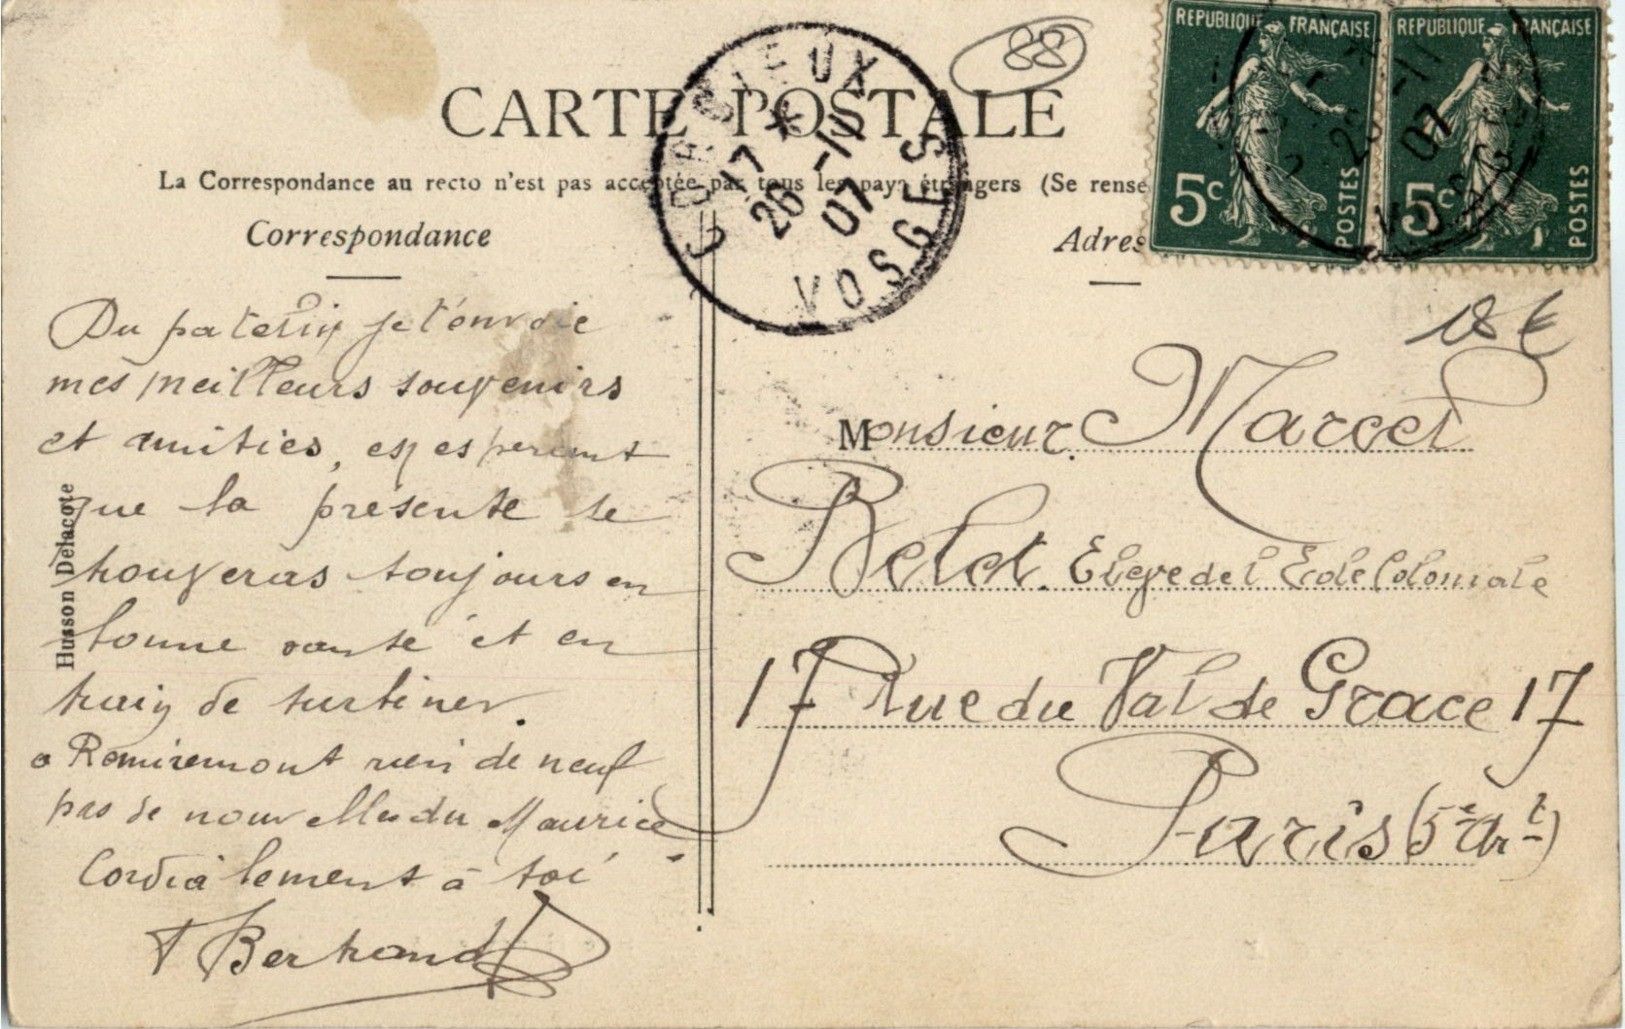 88
CARTE POSTALE
La Correspondance au recto n'est pas acceptée par tous les pays étrangers (Se rense
Correspondance
Adres
CORCIEUX
17
26 -11
07
VOSGES
REPUBLIQUE FRANÇAISE
5c
POSTES
REPUBLIQUE FRANÇAISE
5c
POSTES
26 -11
07
VOSG
Du patelin je t'envoie
mes meilleurs souvenirs
et amitiés, en esperant
que la présente te
trouveras toujours en
bonne santé et en
train de turbiner.
a Remiremont rien de neuf
pas de nouvelles du Maurice
Cordialement à toi
Bertrand
Husson Delacote
18 €
Monsieur Marcel
Belot. Elève de l Ecole Coloniale
17 Rue du Val de Grace 17
Paris (5e Art)